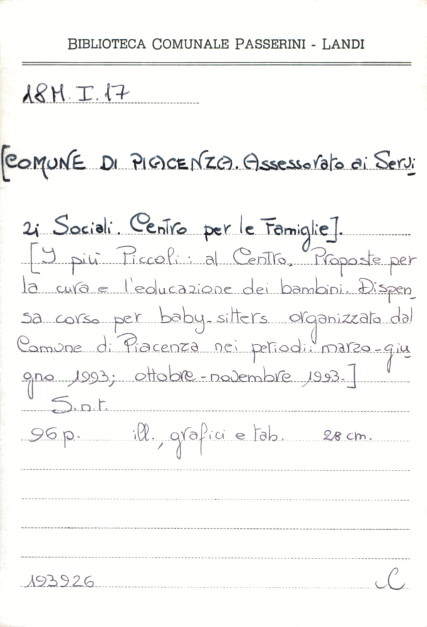 BIBLIOTECA COMUNALE PASSERINI - LANDI
18M.I.17
[COMUNE DI PIACENZA. Assessorato ai Servi
zi Sociali. Centro per le Famiglie].
[I più Piccoli: al Centro. Proposte per
la cura e l'educazione dei bambini. Dispen
sa corso per baby-sitters organizzato dal
Comune di Piacenza nei periodi: marzo-giu
gno 1993; ottobre-novembre 1993.]
S.n.t.
96 p. ill., grafici e tab. 28 cm.
193926 C